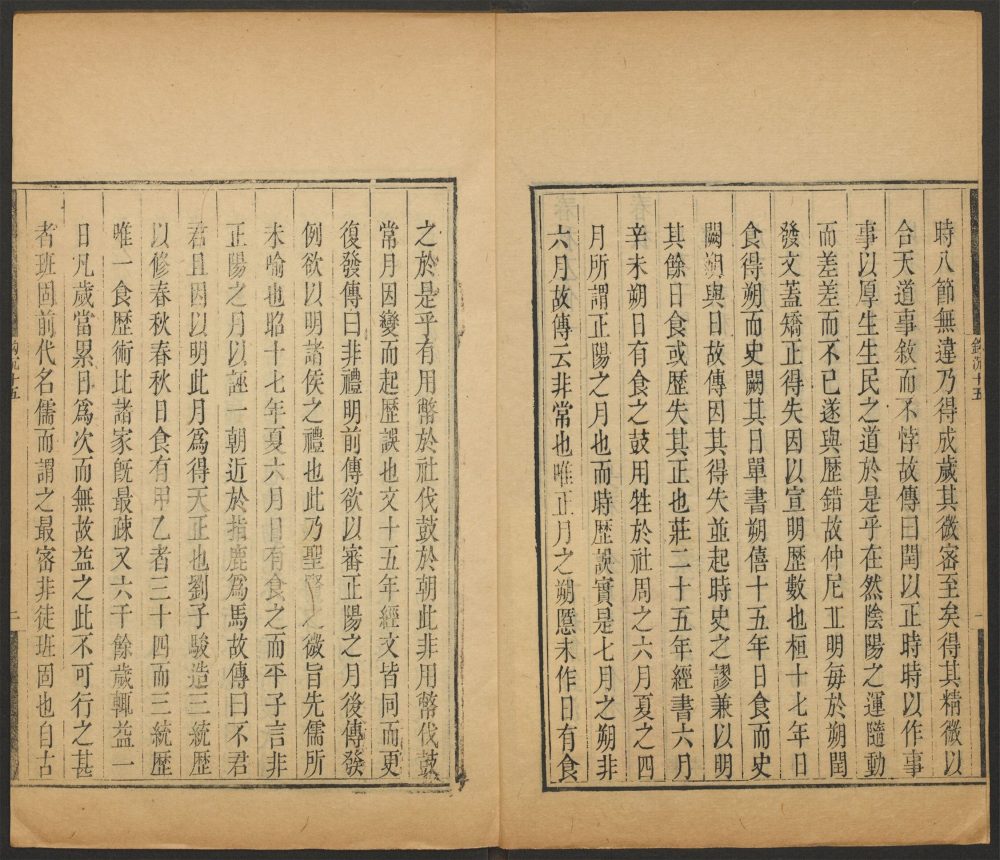 時八節無違乃得成歲其微密至矣得其精微以
合天道事敘而不悖故傳曰閏以正時時以作事
事以厚生生民之道於是乎在然陰陽之運隨動
而差差而不已遂與歷錯故仲尼丘明每於朔閏
發文蓋矯正得失因以宣明歷數也桓十七年日
食得朔而史闕其日單書朔僖十五年日食而史
闕朔與日故傳因其得失並起時史之謬兼以明
其餘日食或歷失其正也莊二十五年經書六月
辛未朔日有食之鼓用牲於社周之六月夏之四
月所謂正陽之月也而時歷誤實是七月之朔非
六月故傳云非常也唯正月之朔慝未作日有食
之於是乎有用幣於社伐鼓於朝此非用幣伐鼓
常月因變而起歷誤也文十五年經文皆同而更
復發傳曰非禮明前傳欲以審正陽之月後傳發
例欲以明諸侯之禮也此乃聖賢之微旨先儒所
未喻也昭十七年夏六月日有食之而平子言非
正陽之月以誣一朝近於指鹿爲馬故傳曰不君
君且因以明此月爲得天正也劉子駿造三統歷
以修春秋春秋日食有甲乙者三十四而三統歷
唯一食歷術比諸家旣最疎又六千餘歲輒益一
日凡歲當累日爲次而無故益之此不可行之甚
者班固前代名儒而謂之最密非徒班固也自古